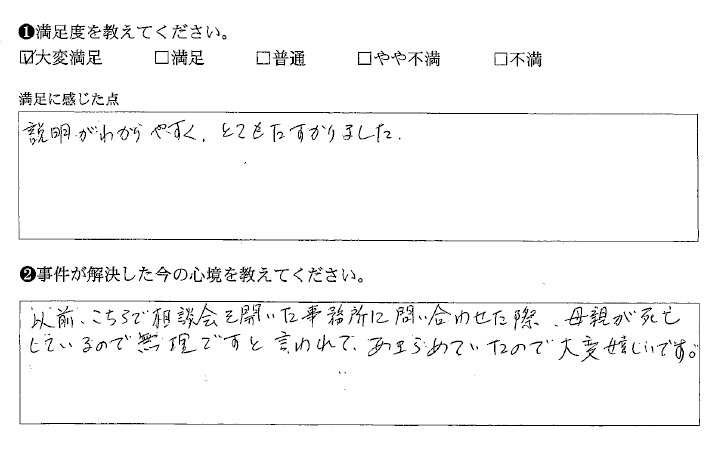 ❶満足度を教えてください。
☑大変満足 □満足 □普通 □やや不満 □不満
満足に感じた点
説明がわかりやすく、とてもたすかりました。
❷事件が解決した今の心境を教えてください。
以前、こちらで相談会を開いた事務所に問い合わせた際、母親が死亡
しているので無理ですと言われて、あきらめていたので大変嬉しいです。